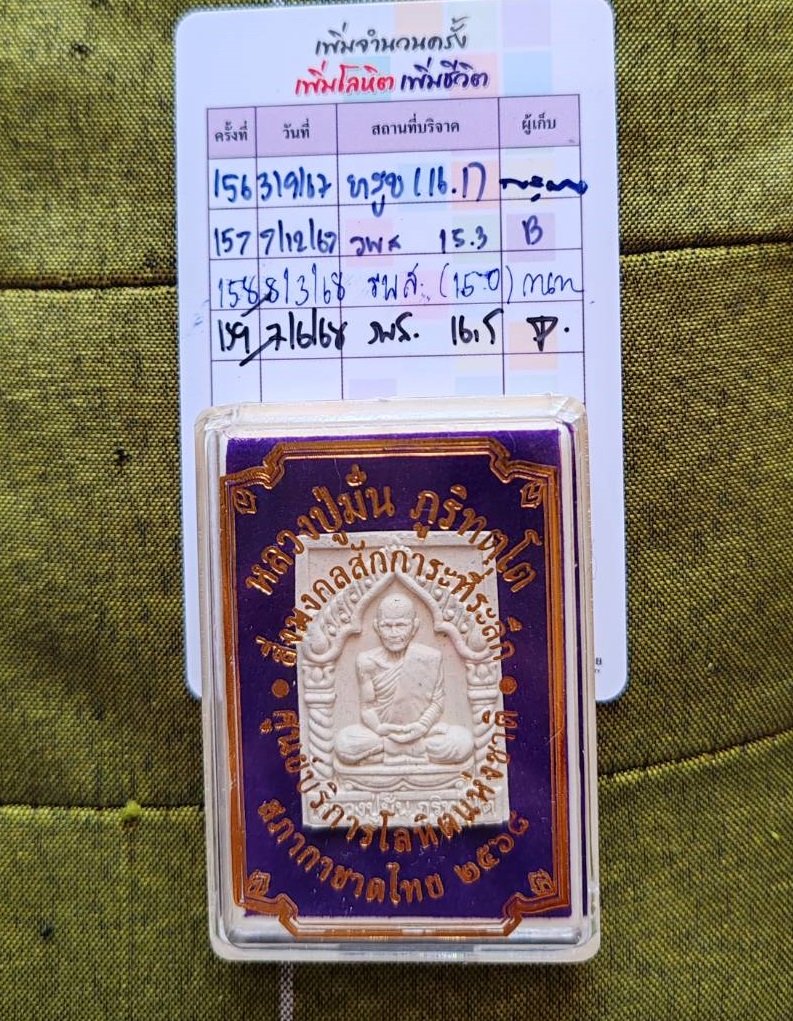 เพิ่มจำนวนครั้ง
เพิ่มโลหิต เพิ่มชีวิต
ครั้งที่ วันที่ สถานที่บริจาค ผู้เก็บ
156 3/9/67 (16.1)
157 7/12/67 รพส 15.3 B
158 8/3/68 รพส. (15.0)
159 7/6/68 รพส. 16.5
หลวงปู่มั่น ภูริทตฺโต
สิ่งมงคลสักการะที่ระลึก
ศูนย์บริการโลหิตแห่งชาติ
สภากาชาดไทย ๒๕๖๘